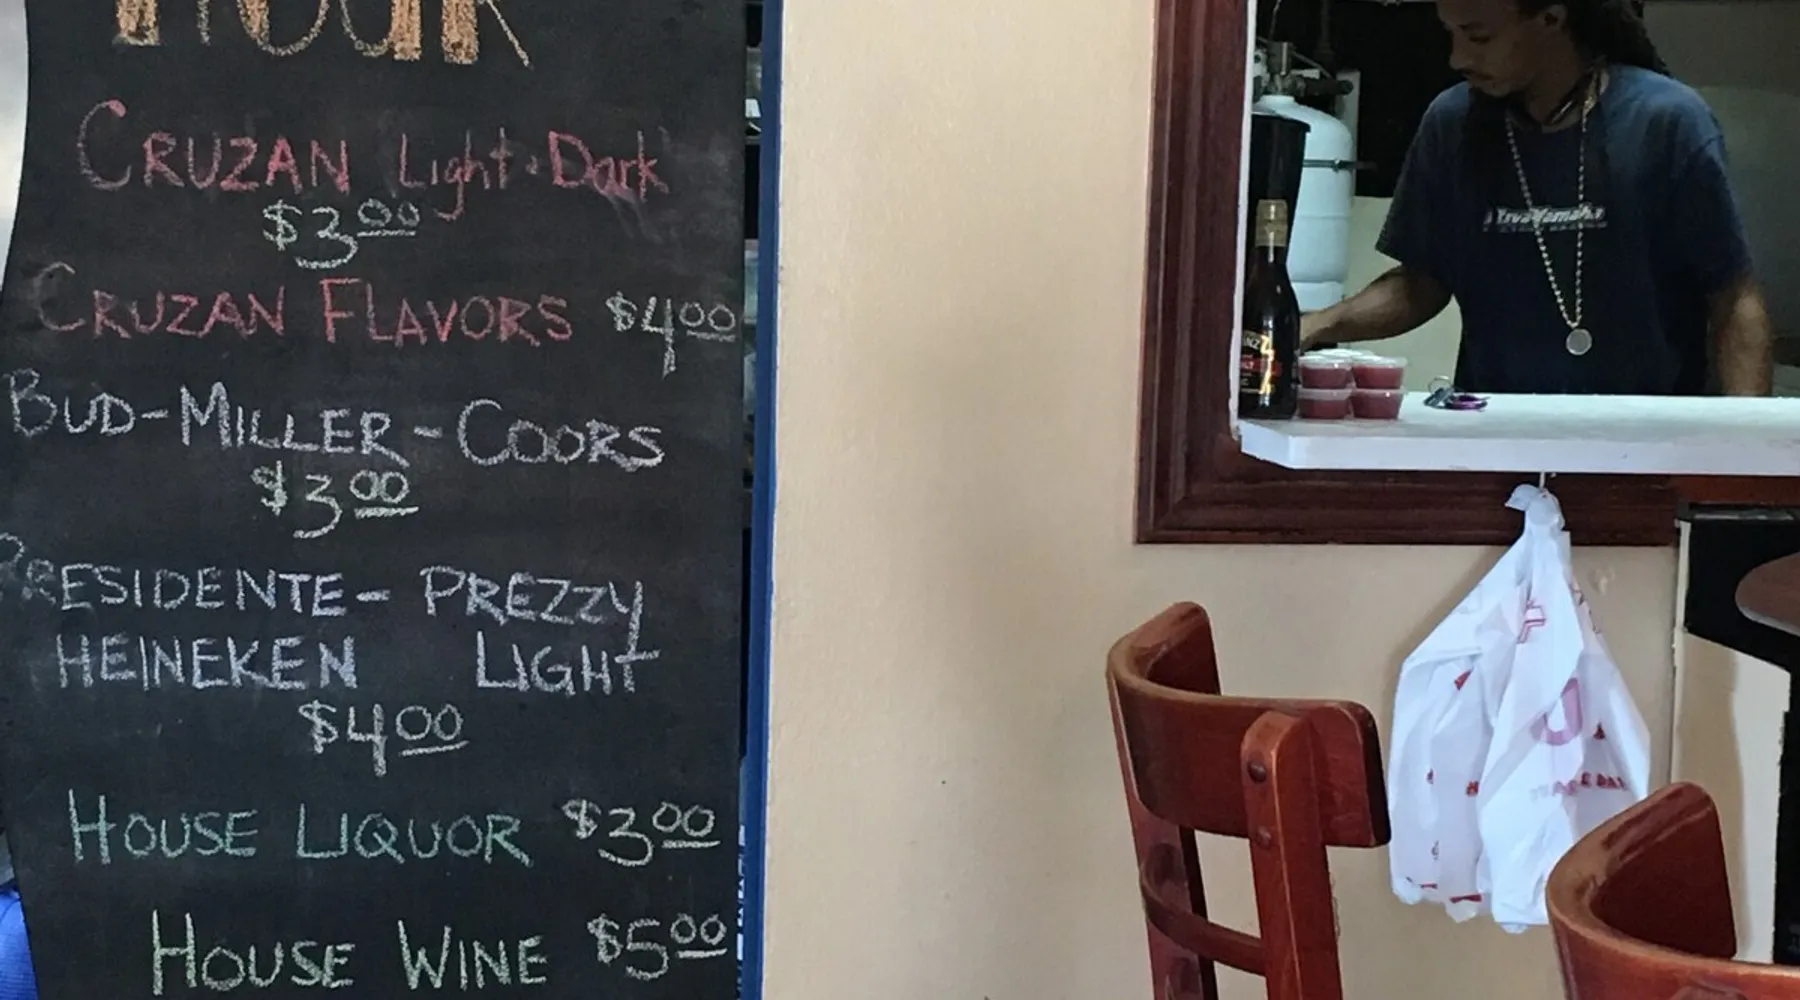 HOUR
CRUZAN Light · Dark
$3.00
CRUZAN FLAVORS $4.00
BUD-MILLER-COORS
$3.00
PRESIDENTE- PREZZY
HEINEKEN LIGHT
$4.00
HOUSE LIQUOR $3.00
HOUSE WINE $5.00